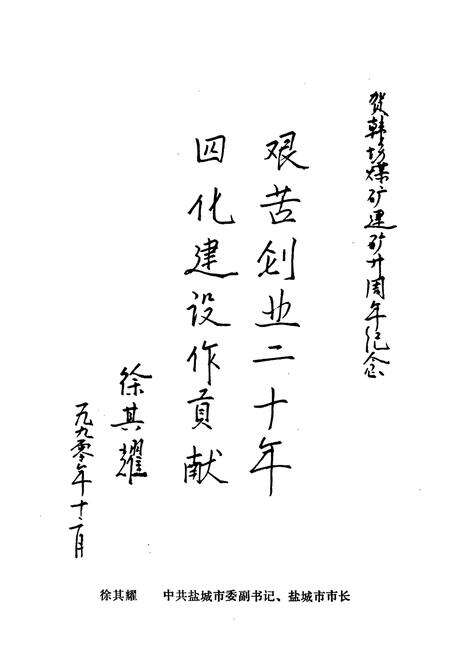 贺韩坊煤矿建矿廿周年纪念
艰苦创业二十年
四化建设作贡献
徐其耀
一九九零年十二月
徐其耀 中共盐城市委副书记、盐城市市长